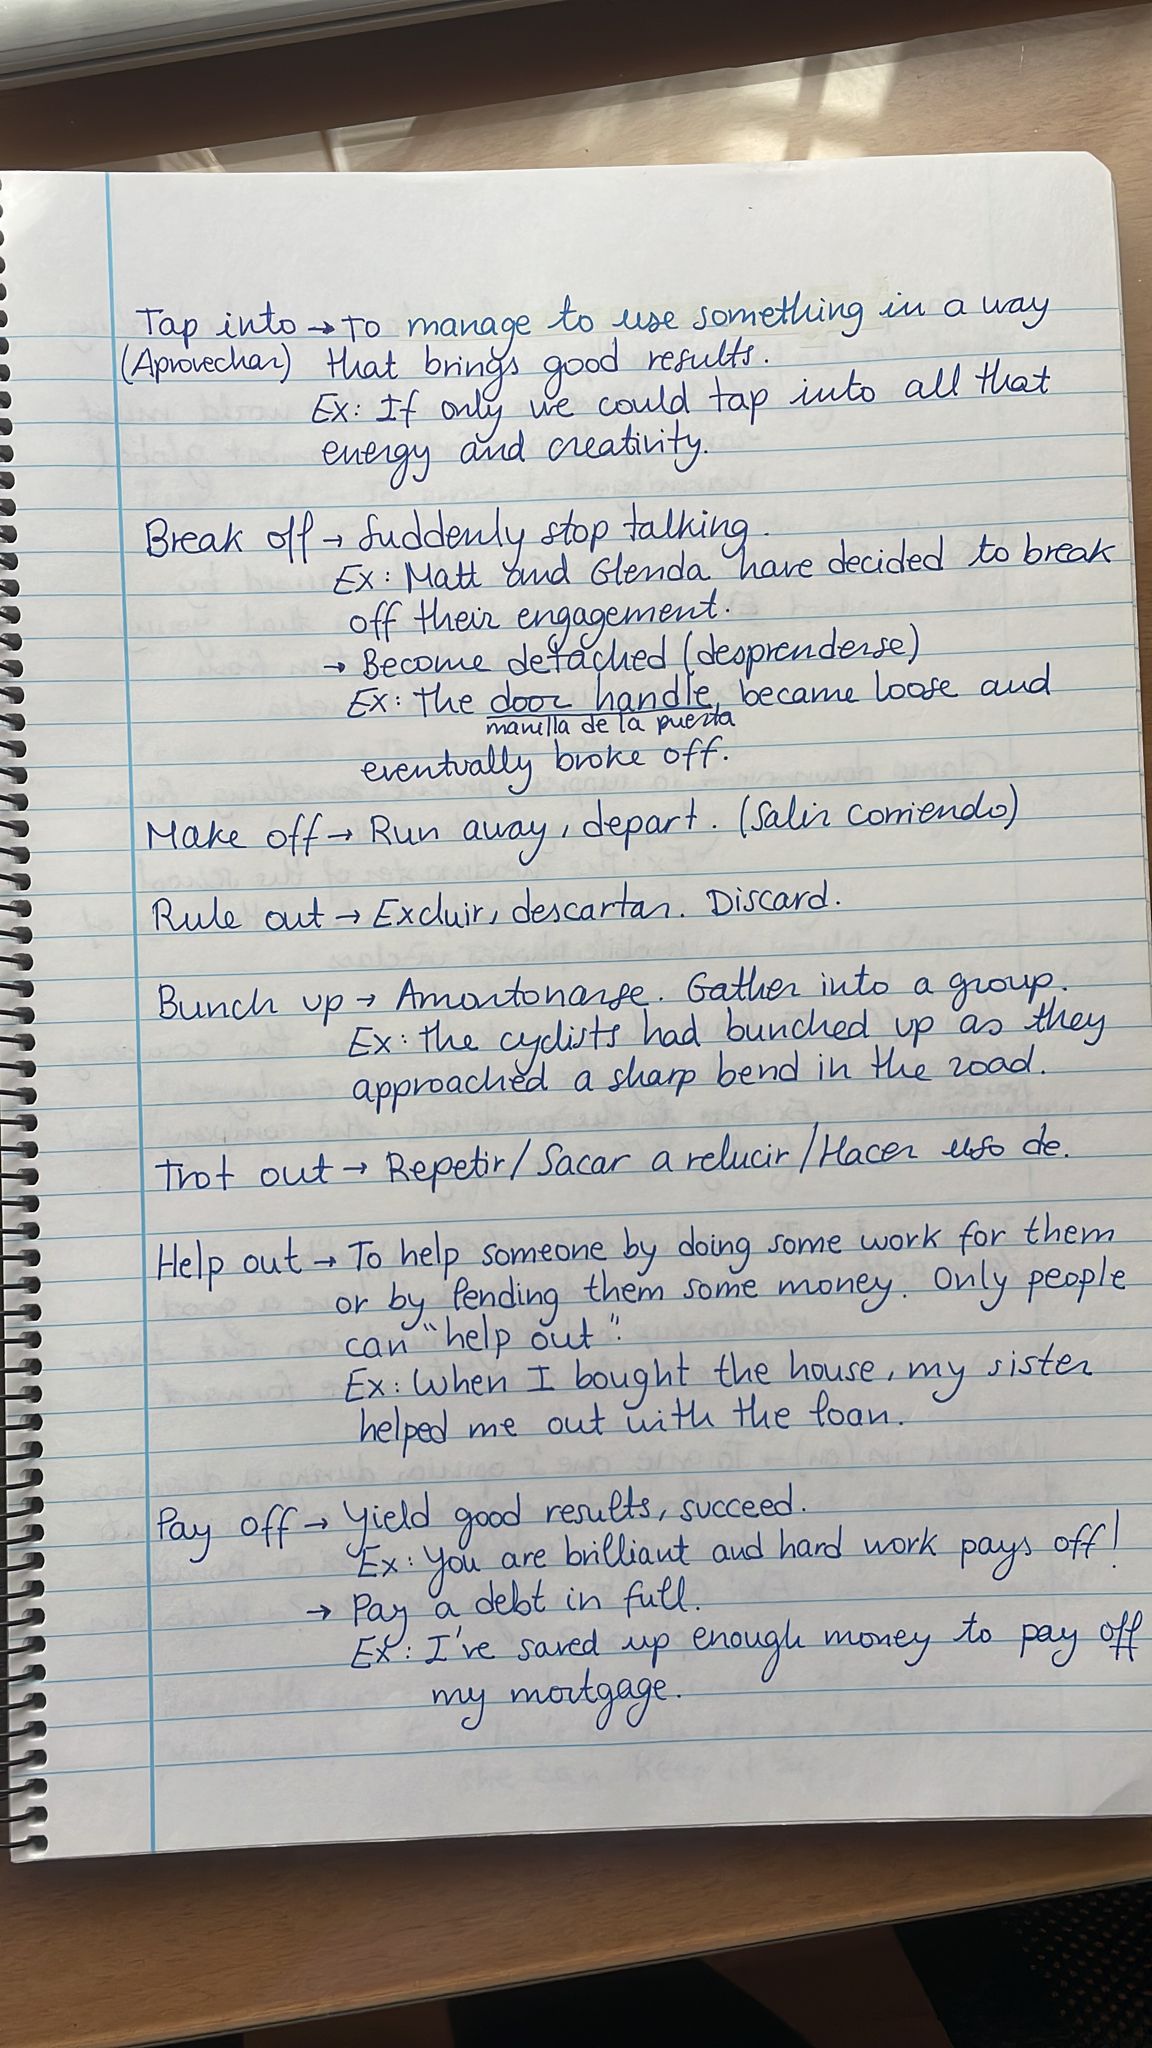 Tap into → To manage to use something in a way
(Aprovechar) that brings good results.
Ex: If only we could tap into all that
energy and creativity.
Break off → Suddenly stop talking.
Ex: Matt and Glenda have decided to break
off their engagement.
→ Become detached (desprenderse)
Ex: The door handle, became loose and
manilla de la puerta
eventually broke off.
Make off → Run away, depart. (Salir corriendo)
Rule out → Excluir, descartar. Discard.
Bunch up → Amontonarse. Gather into a group.
Ex: The cyclists had bunched up as they
approached a sharp bend in the road.
Trot out → Repetir/Sacar a relucir/Hacer uso de.
Help out → To help someone by doing some work for them
or by lending them some money. Only people
can "help out".
Ex: When I bought the house, my sister
helped me out with the loan.
Pay off → Yield good results, succeed.
Ex: You are brilliant and hard work pays off!
→ Pay a debt in full.
Ex: I've saved up enough money to pay off
my mortgage.